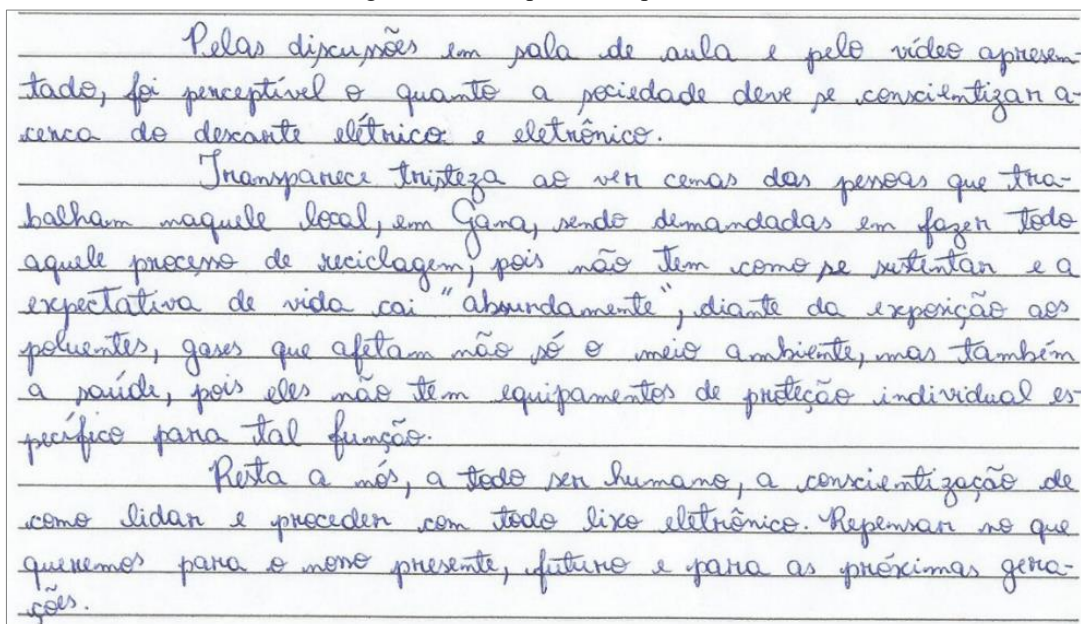 Pelas discussões em sala de aula e pelo vídeo apresen-
tado, foi perceptível o quanto a sociedade deve se conscientizar a-
cerca do descarte elétrico e eletrônico.
Transparece tristeza ao ver cenas das pessoas que tra-
balham naquele local, em Gana, sendo demandadas em fazer todo
aquele processo de reciclagem, pois não tem como se sustentar e a
expectativa de vida cai "absurdamente", diante da exposição aos
poluentes, gases que afetam não só o meio ambiente, mas também
a saúde, pois eles não tem equipamentos de proteção individual es-
pecífico para tal função.
Resta a nós, a todo ser humano, a conscientização de
como lidar e proceder com todo lixo eletrônico. Repensar no que
queremos para o nosso presente, futuro e para as próximas gera-
ções.